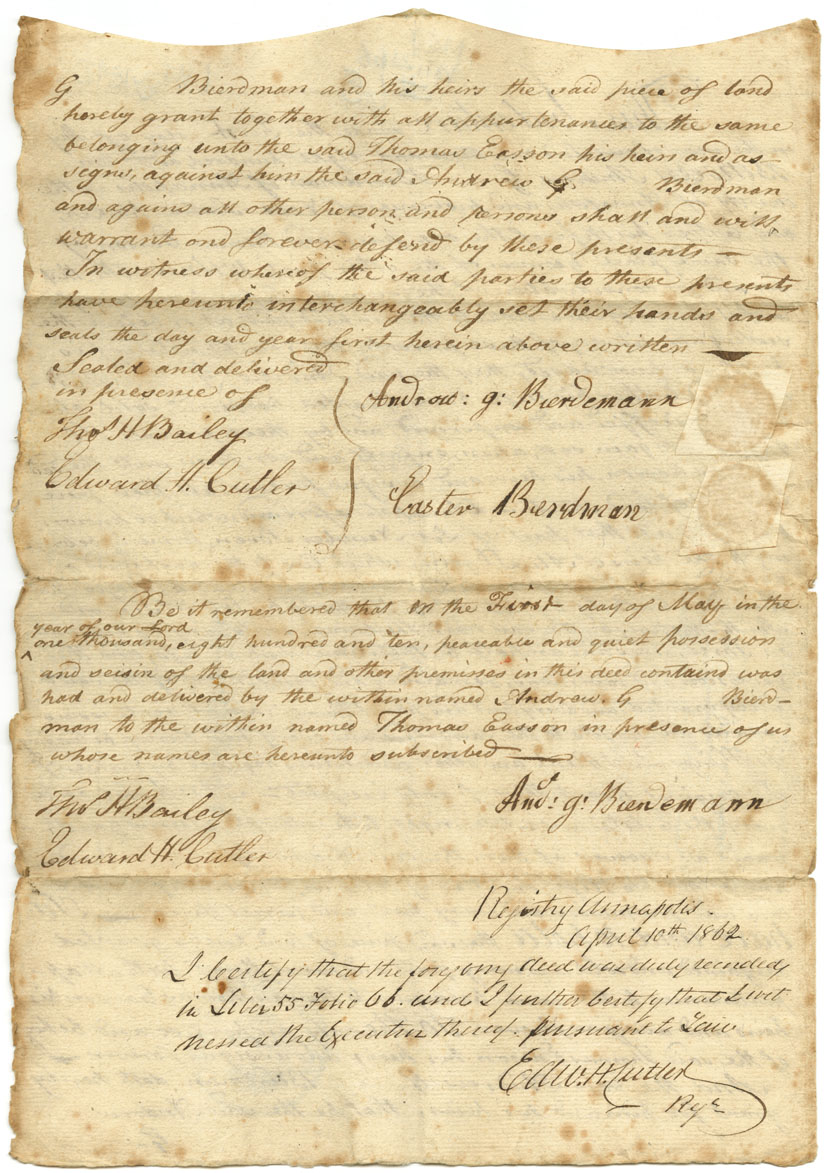 G Bierdman and his heirs the said piece of land
hereby grant together with all appurtenances to the same
belonging unto the said Thomas Easson his heirs and as-
signs, against him the said Andrew G Bierdman
and agains all other person and persons shall and will
warrant and forever defend by these presents —
In witness whereof the said parties to these presents
have hereunto interchangeably set their hands and
seals the day and year first herein above written
Sealed and delivered
in presence of
Thos H Bailey
Edward H. Cutler
Andrew: g: Bierdemann
Easter Bierdman
Be it remembered that on the First day of May in the
year of our Lord
one thousand, eight hundred and ten, peaceable and quiet possession
and seisin of the land and other premisses in this deed containd was
had and delivered by the within named Andrew. G Bierd-
man to the within named Thomas Easson in presence of us
whose names are hereunto subscribed —
Thos H Bailey
Edward H. Cutler
Andw: g: Bierdemann
Registry Annapolis.
April 10th 1862
I Certify that the foregoing deed was duly recorded
in Liber 55 Folio 66. and I further Certify that I wit
nessed the Execution thereof pursuant to Law
Edw. H. Cutler
Rgr